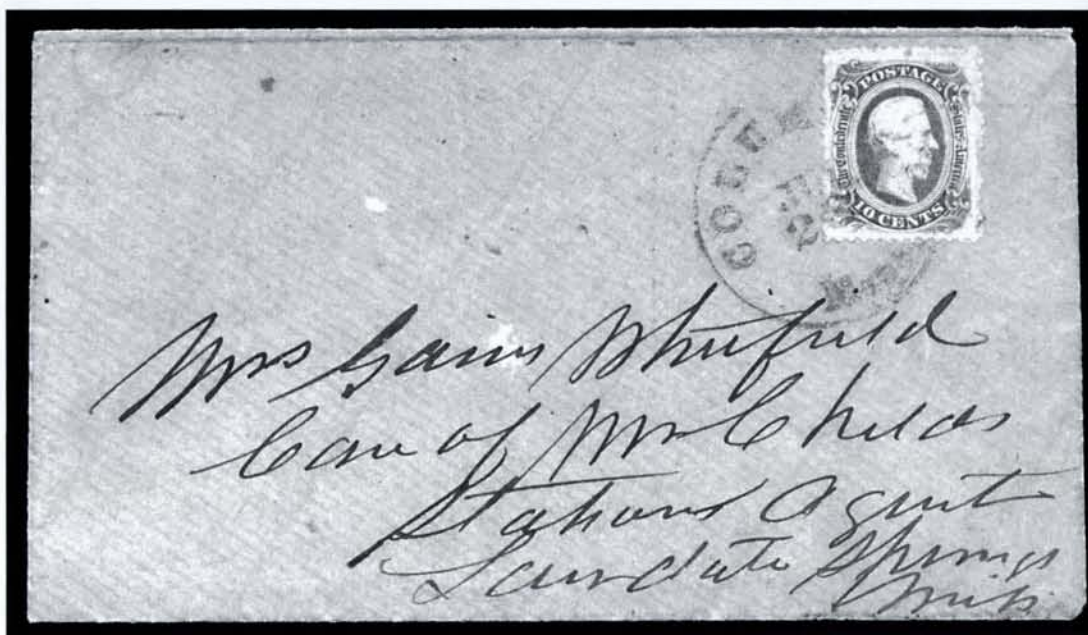 POSTAGE
The Confederate States of America
10 CENTS
COLUM
2
Mrs Gaius Whitfield
Care of Mr Childs
Station Agent
Lauderdale Springs
Miss